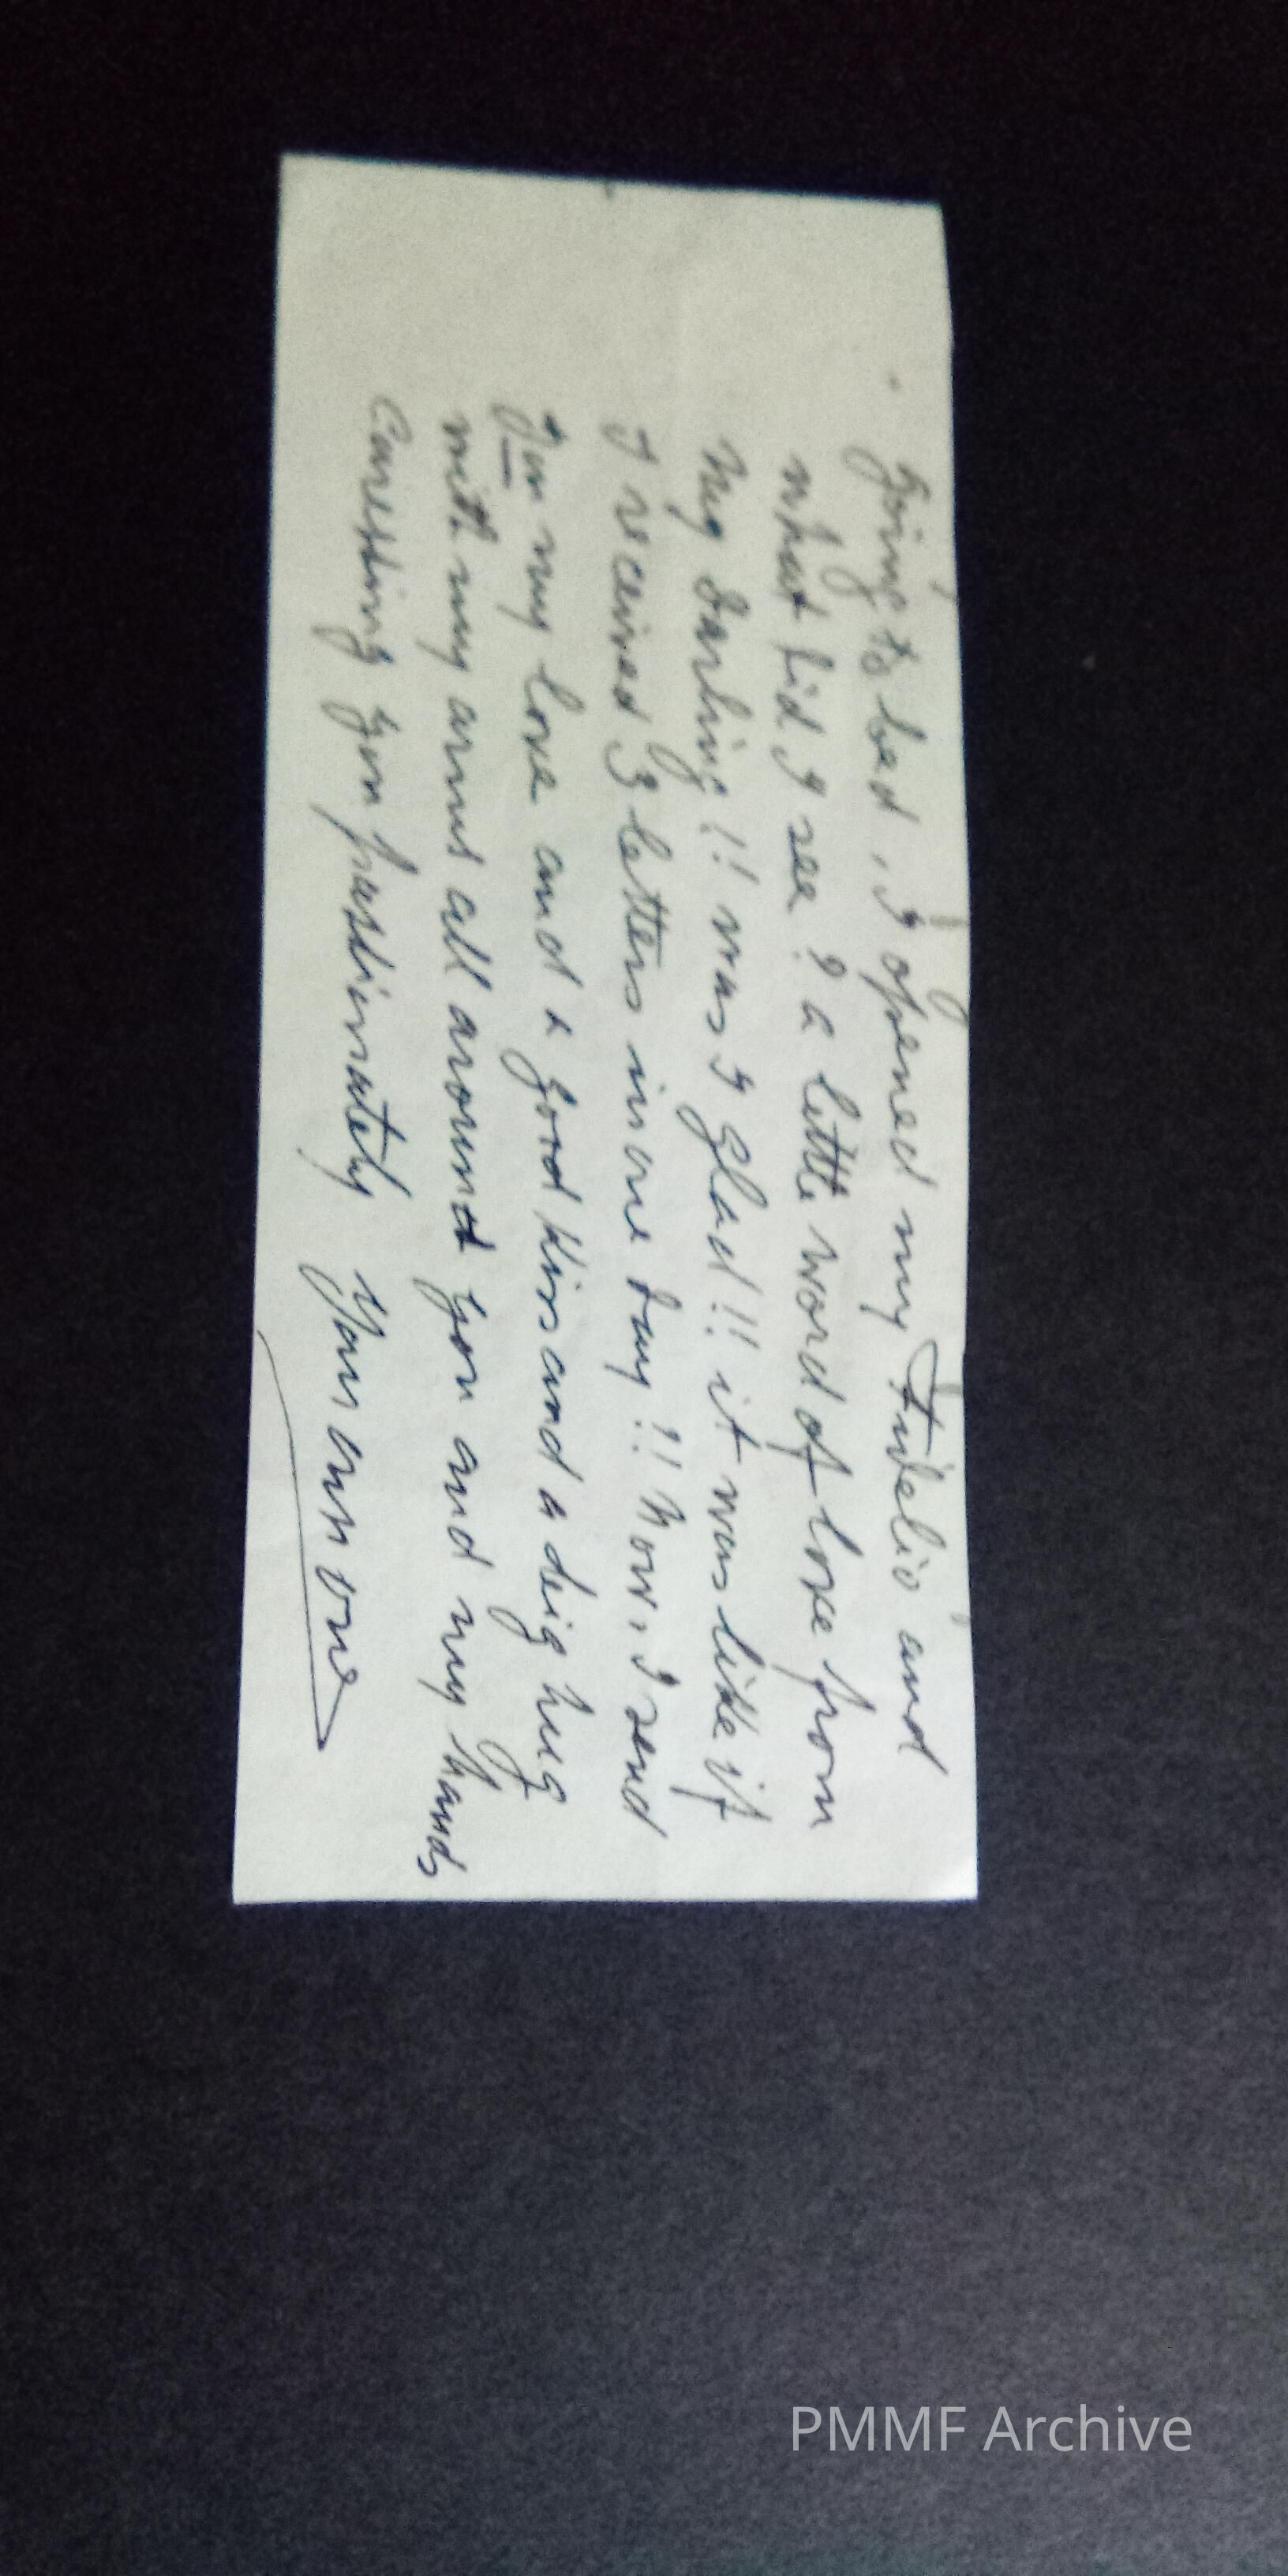 going to bed, I opened my Fidelio and
what did I see? a little word of love from
my darling!! was I glad!! it was like if
I received 3 letters in one day!!! Now, I send
you my love and a good kiss and a big hug
with my arms all around you and my hands
caressing you passionately Your own one
PMMF Archive